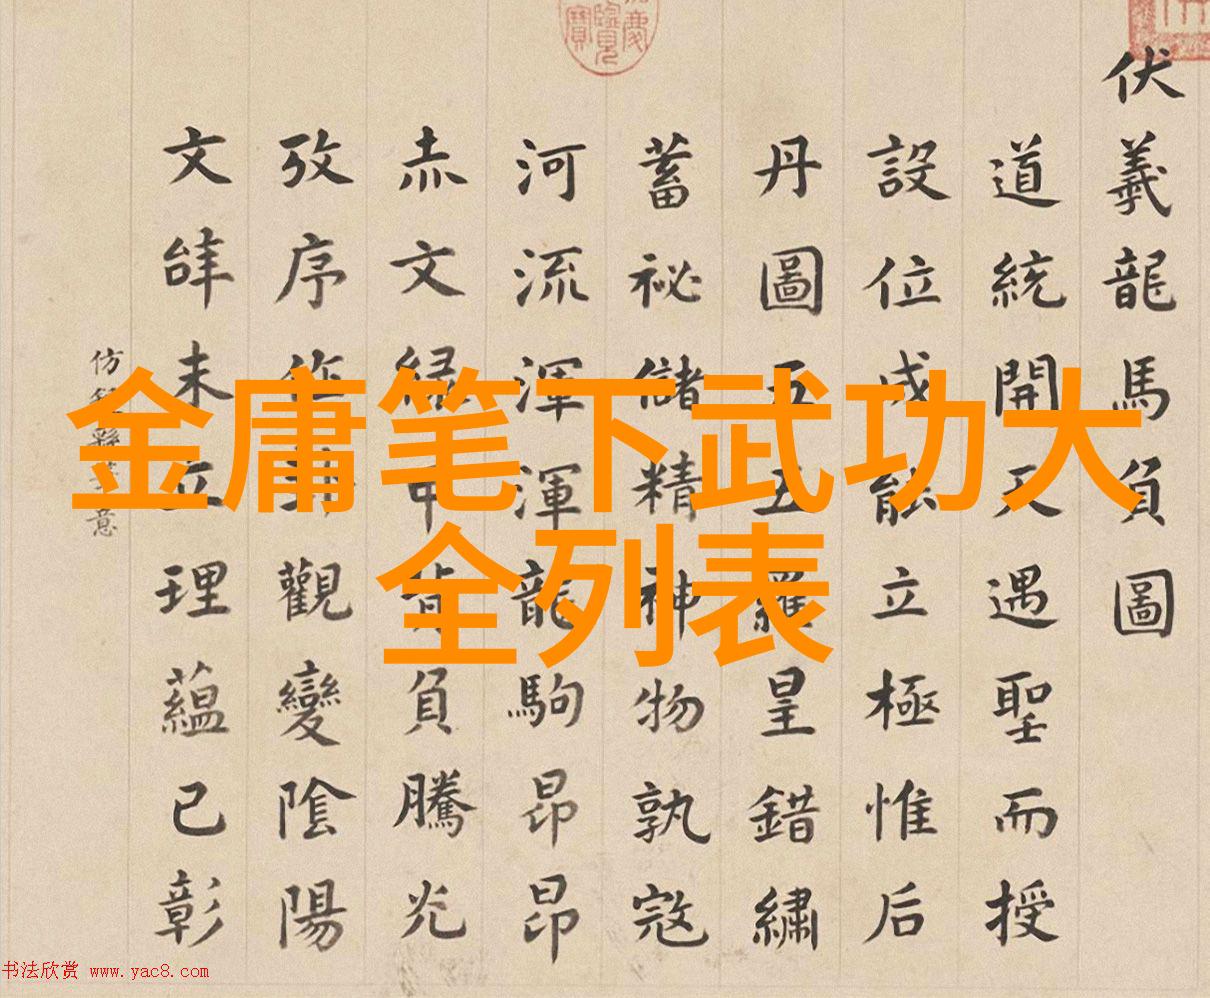 金庸笔下武功大
全列表
伏羲龍馬負圖
道統開天遇聖而授
設位成能立極惟后
丹圖五五羅皇錯繡
蓄祕儲精神物孰寇
河流渾渾龍駒昂昂
赤文綠甲背負騰光
攷序作觀變陰陽
文辝未立理蘊已彰
仿意
书法欣赏 www.yac8.com